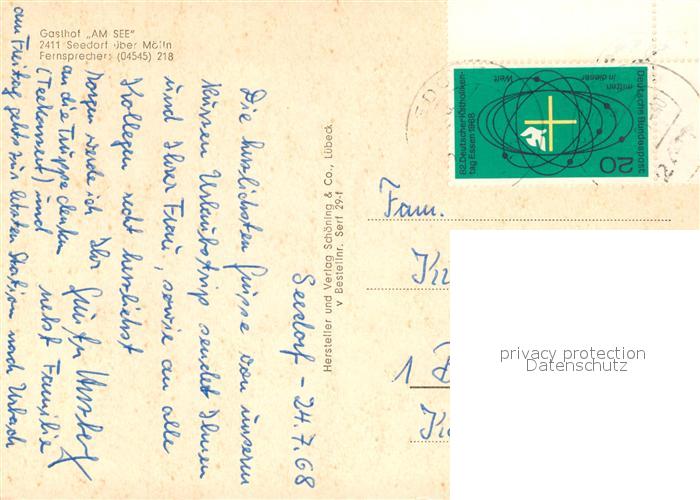 Gasthof „AM SEE"
2411 Seedorf über Mölln
Fernsprecher: (04545) 218
Seedorf - 24.7.68
Die herzlichsten Grüsse von unserem
kurzen Urlaubstrip sendet Ihnen
und Ihrer Frau, sowie an alle
Kollegen recht herzlichst
Ihr
nebst Familie
Morgen werde ich
an die Truppe denken
(Teekonsum) und
am Freitag gehts zur letzten Station nach
Hersteller und Verlag Schöning & Co., Lübeck
v Bestellnr. Serf 29-f
82. Deutscher Katholiken-
tag Essen 1968
mitten
in dieser
Welt
Deutsche Bundespost
20
Fam.
Ki
1 B
privacy protection
Datenschutz